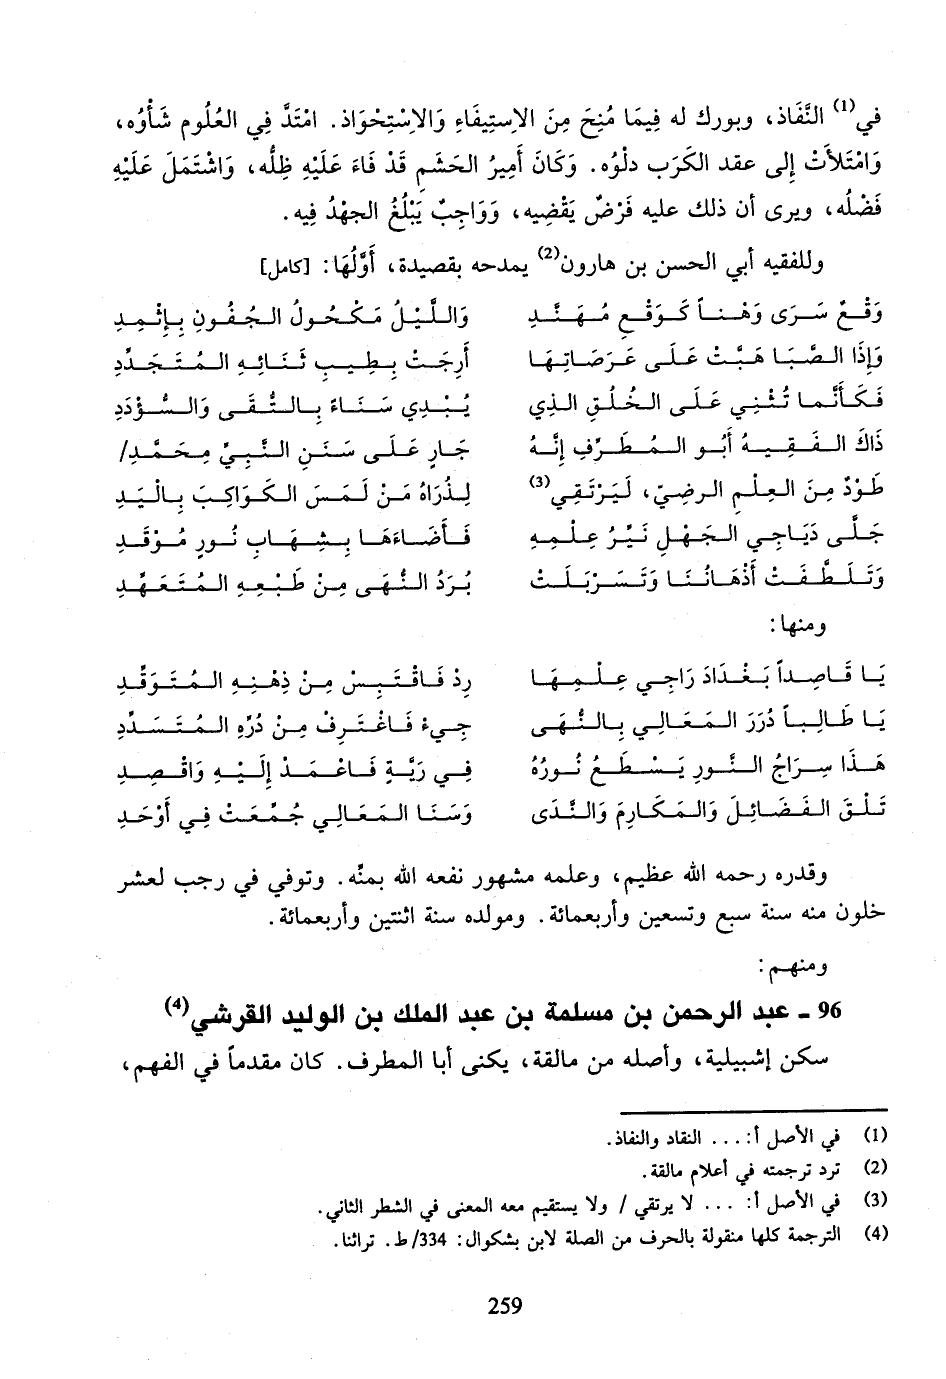 في(1) النَّفَاذ، وبورك له فِيمَا مُنِحَ مِنَ الاسِتِيفَاءِ وَالاسْتِحْوَاذ. امْتَدَّ فِي العُلُومِ شَأْوُه،
وَامْتَلأَتْ إلى عقد الكَرَب دلْوُه. وَكَانَ أَمِيرُ الحَشَمِ قَدْ فَاءَ عَلَيْهِ ظِلُّه، وَاشْتَمَلَ عَلَيْهِ
فَضْلُه، ويرى أن ذلك عليه فَرْضٌ يَقْضِيه، وَوَاجِبٌ يَبْلُغُ الجهْدُ فِيه.
وللفقيه أبي الحسن بن هارون(2) يمدحه بقصيدة، أَوَّلُهَا: [كامل]
وَقْعٌ سَرَى وَهْناً كَوَقْعِ مُهَنَّدِ وَاللَّيْلُ مَكْحُولُ الجُفُونِ بِإثْمِدِ
وَإِذَا الصَّبَا هَبَّتْ عَلَى عَرَصَاتِهَا أَرِجَتْ بِطِيبِ ثَنَائِهِ المُتَجَدِّدِ
فَكَأَنَّمَا تُثْنِي عَلَى الخُلُقِ الذِي يُبْدِي سَنَاءً بِالتُّقَى وَالسُّؤْدَدِ
ذَاكَ الفَقِيهُ أَبُو المُطَرِّفِ إِنَّهُ جَارٍ عَلَى سَنَنِ النَّبِيِّ مِحَمَّدِ/
طَوْدٌ مِنَ العِلْمِ الرضِيِّ، لَيَرْتَقِي(3) لِذُرَاهُ مَنْ لَمَسَ الكَوَاكِبَ بِاليَدِ
جَلَّى دَيَاجِي الجَهْلِ نَيِّرُ عِلْمِهِ فَأَضَاءَهَا بِشِهَابِ نُورٍ مُوْقَدِ
وَتَلَطَّفَتْ أَذْهَانُنَا وَتَسَرْبَلَتْ بُرْدَ النُّهَى مِنْ طَبْعِهِ المُتَمَهِّدِ
ومنها:
يَا قَاصِداً بَغْدَادَ رَاجِي عِلْمِهَا رِدْ فَاقْتَبِسْ مِنْ ذِهْنِهِ المُتَوَقِّدِ
يَا طَالِباً دُرَرَ المَعَالِي بِالنُّهَى جِيءْ فَاغْتَرِفْ مِنْ دُرِّهِ المُتَسَدِّدِ
هَذَا سِرَاجُ النُّورِ يَسْطَعُ نُورُهُ فِي رَيَّةٍ فَاعْمَدْ إِلَيْهِ وَاقْصِدِ
تَلْقَ الفَضَائِلَ وَالمَكَارِمَ وَالنَّدَى وَسَنَا المَعَالِي جُمِّعَتْ فِي أَوْحَدِ
وقدره رحمه الله عظيم، وعلمه مشهور نفعه الله بمنّه. وتوفي في رجب لعشر
خلون منه سنة سبع وتسعين وأربعمائة. ومولده سنة اثنتين وأربعمائة.
ومنهم:
96 - عبد الرحمن بن مسلمة بن عبد الملك بن الوليد القرشي(4)
سكن إشبيلية، وأصله من مالقة، يكنى أبا المطرف. كان مقدماً في الفهم،
(1) في الأصل أ: ... النقاد والنفاذ.
(2) ترد ترجمته في أعلام مالقة.
(3) في الأصل أ: ... لا يرتقي / ولا يستقيم معه المعنى في الشطر الثاني.
(4) الترجمة كلها منقولة بالحرف من الصلة لابن بشكوال: 334/ط. تراثنا.
259